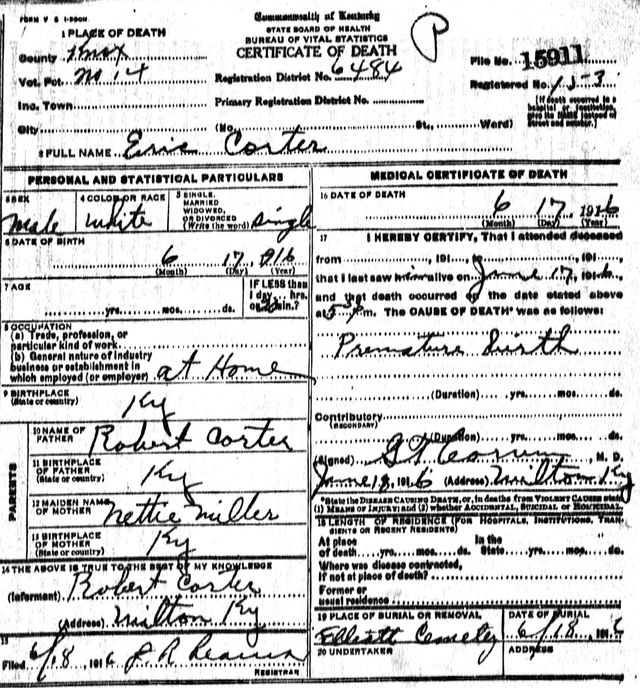 FORM V S 1-200M
Commonwealth of Kentucky
STATE BOARD OF HEALTH
BUREAU OF VITAL STATISTICS
CERTIFICATE OF DEATH
P
1 PLACE OF DEATH
County Knox
Vot. Pct. No 14
Inc. Town
City
Registration District No. 6484
Primary Registration District No.
(No. St., Ward)
File No. 15911
Registered No. 153
[If death occurred in a hospital or institution, give its NAME instead of street and number.]
2 FULL NAME Eric Corter
PERSONAL AND STATISTICAL PARTICULARS
3 SEX
Male
4 COLOR OR RACE
White
5 SINGLE, MARRIED WIDOWED, OR DIVORCED (Write the word)
Single
6 DATE OF BIRTH
6 17 1916
(Month) (Day) (Year)
7 AGE
yrs. mos. ds.
IF LESS than 1 day... hrs. or min.?
8 OCCUPATION
(a) Trade, profession, or particular kind of work
(b) General nature of industry business or establishment in which employed (or employer)
at Home
9 BIRTHPLACE (State or country)
Ky
PARENTS
10 NAME OF FATHER
Robert Corter
11 BIRTHPLACE OF FATHER (State or country)
Ky
12 MAIDEN NAME OF MOTHER
Nettie Miller
13 BIRTHPLACE OF MOTHER (State or country)
Ky
14 THE ABOVE IS TRUE TO THE BEST OF MY KNOWLEDGE
(Informant) Robert Corter
(Address) Milton Ky
15
Filed 6/18 1916 J R
REGISTRAR
MEDICAL CERTIFICATE OF DEATH
16 DATE OF DEATH
6 17 1916
(Month) (Day) (Year)
17 I HEREBY CERTIFY, That I attended deceased
from , 191 , to , 191 ,
that I last saw him alive on June 17, 1916,
and that death occurred on the date stated above
at 5 P m. The CAUSE OF DEATH* was as follows:
Premature Birth
(Duration) yrs. mos. ds.
Contributory (SECONDARY)
(Duration) yrs. mos. ds.
(Signed) M. D.
June 18, 1916 (Address) Milton Ky
*State the DISEASE CAUSING DEATH, or, in deaths from VIOLENT CAUSES state (1) MEANS OF INJURY; and (2) whether ACCIDENTAL, SUICIDAL or HOMICIDAL.
18 LENGTH OF RESIDENCE (FOR HOSPITALS, INSTITUTIONS, TRANSIENTS OR RECENT RESIDENTS)
At place of death yrs. mos. ds. In the State yrs. mos. ds.
Where was disease contracted, if not at place of death?
Former or usual residence
19 PLACE OF BURIAL OR REMOVAL
Elliott Cemetery
DATE OF BURIAL
6/18, 1916
20 UNDERTAKER
ADDRESS